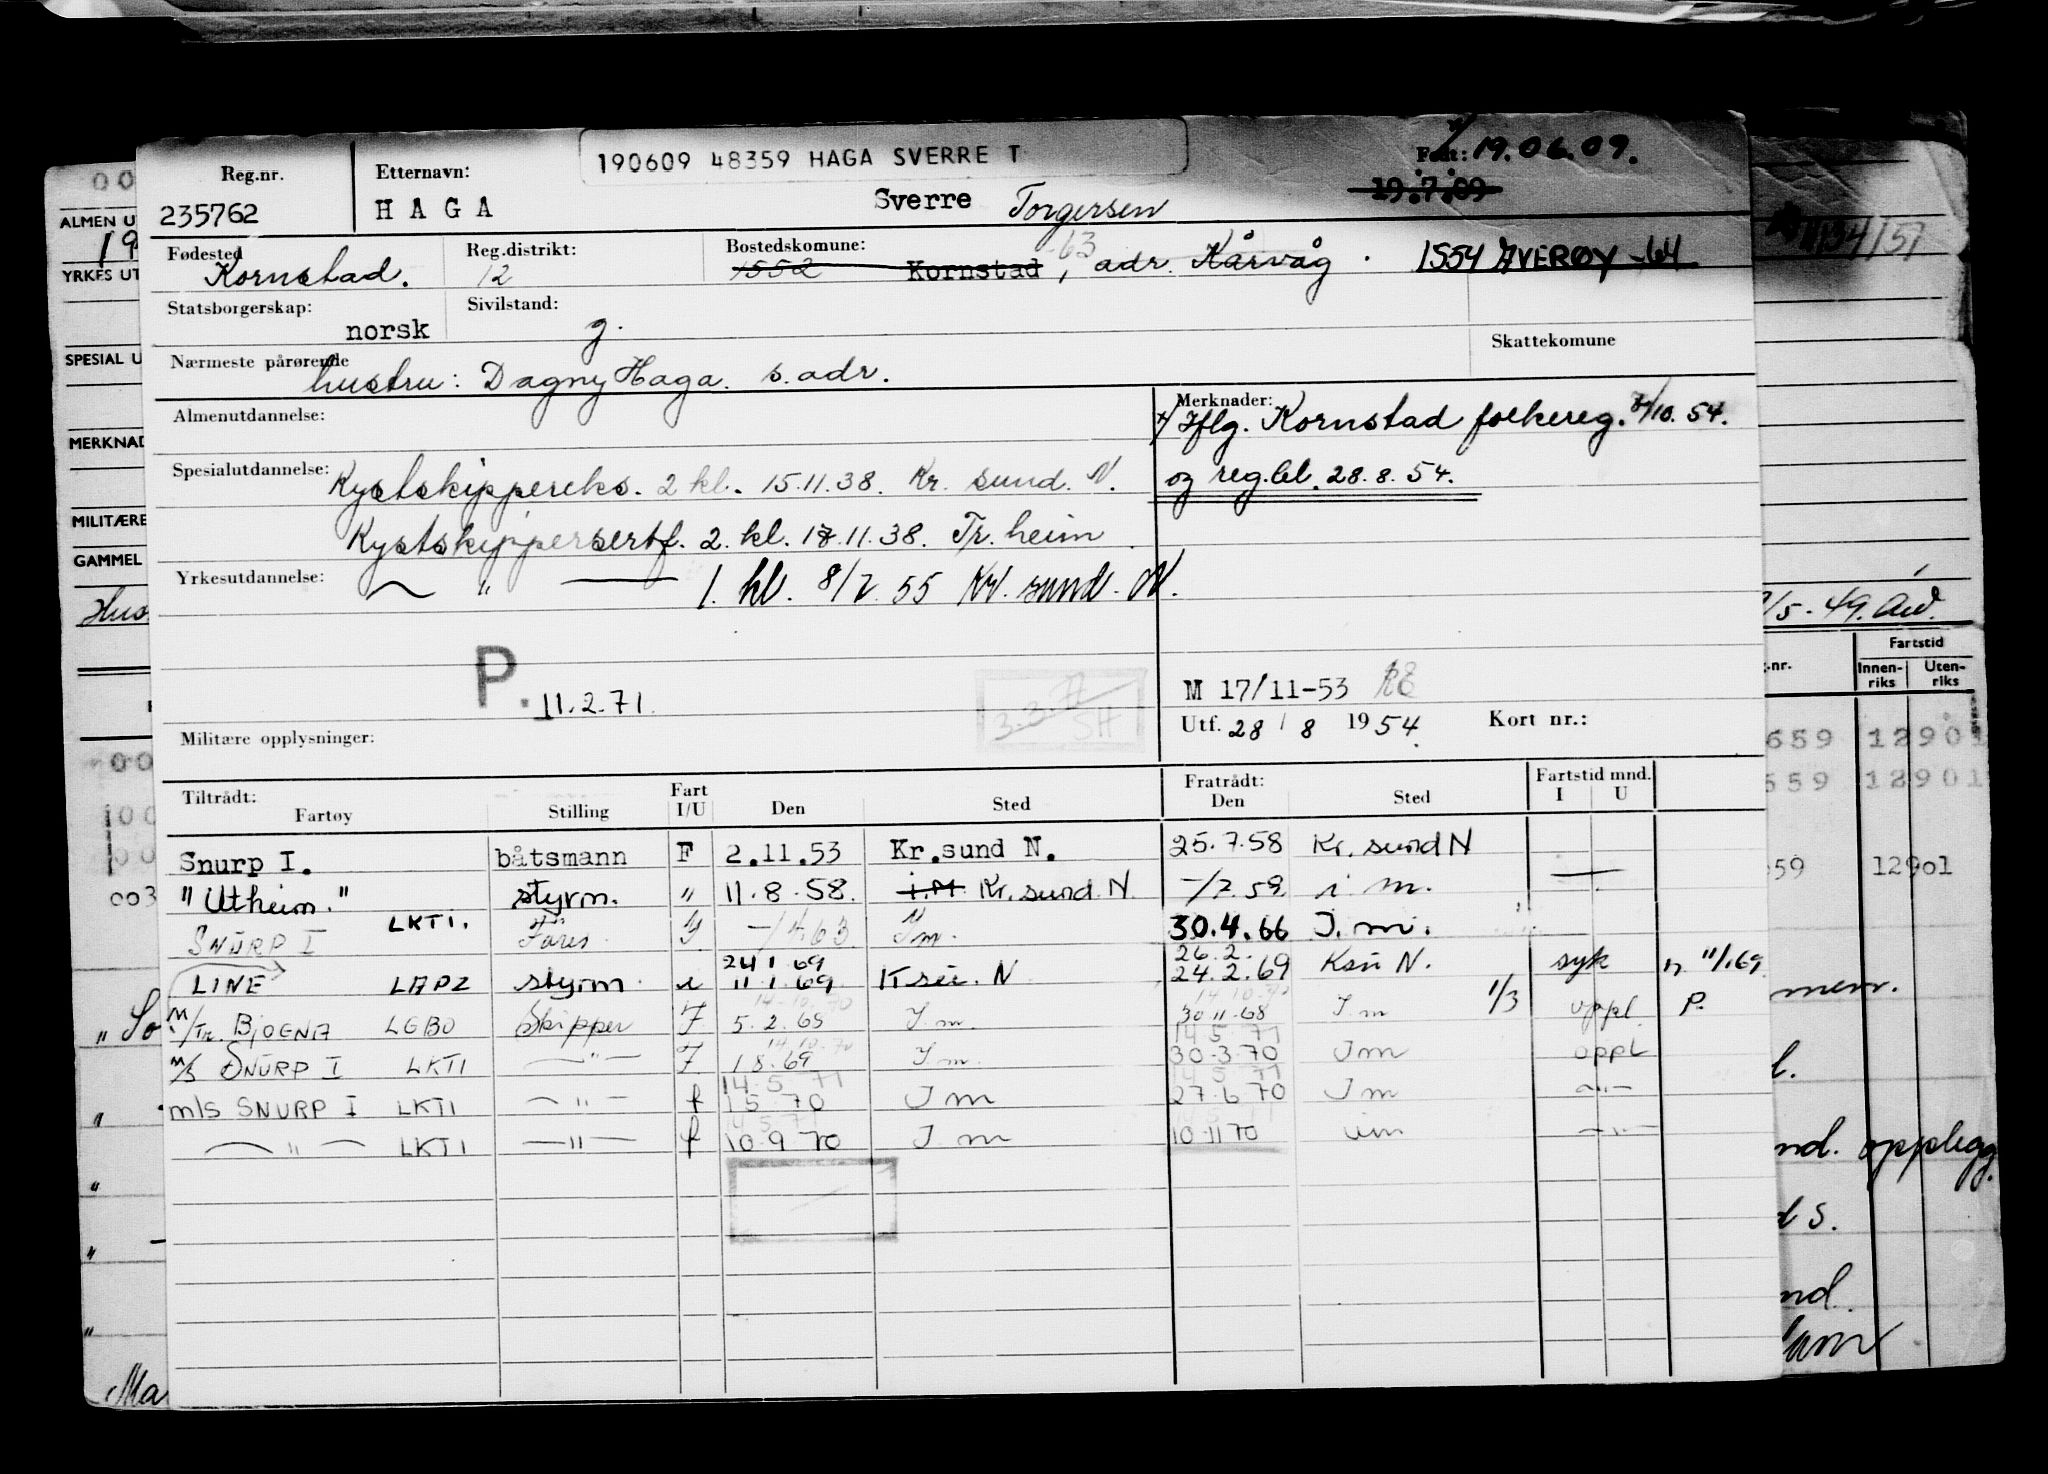 190609 48359 HAGA SVERRE T
Reg.nr. Etternavn: Født: 19.06.09.
235762 HAGA Sverre Torgersen 19.7.09
Fødested Reg.distrikt: Bostedskomune: -63
Kornstad. 12 1552 Kornstad, adr. Kårvåg. 1554 AVERØY -64
Statsborgerskap: Sivilstand:
norsk g.
Skattekomune
Nærmeste pårørende
hustru: Dagny Haga. s. adr.
Almenutdannelse: Merknader:
x/ Iflg. Kornstad folkereg. /10. 54.
og reg.bl. 28.8.54.
Spesialutdannelse: Kystskippereks. 2 kl. 15.11.38. Kr. sund. N.
Kystskippersertf. 2. kl. 18.11.38. Tr. heim
Yrkesutdannelse: — " — 1. kl. 8/7 55 Kr. sund. N.
P. 11.2.71.
3.3.71 SH
M 17/11-53
Utf. 28 / 8 1954. Kort nr.:
Militære opplysninger:
Tiltrådt: Fart Fratrådt: Fartstid mnd.
Fartøy Stilling I/U Den Sted Den Sted I U
Snurp I. båtsmann F 2.11.53 Kr.sund N. 25.7.58 Kr. sund N
"Utheim." styrm. " 11.8.58. i.M Kr. sund. N -/7.59 i m. —
SNURP I LKTI. - /4.63 I m. 30.4.66 I. m.
24 1 69 26.2.
LINE LAPZ styrm. i 11.1.69 Ksu. N 24.2.69 Ksu N. syk n 11/1.69
14.10.70 14.10.70
M/Tr. BJOENA LGBO Skipper F 5.2.68 I. m. 30.11.68 I. m 1/3 oppl. P.
14.10.70 14 5 71
M/S SNURP I LKTI — " — F 1 8.69 I m. 30.3.70 I m oppl
14.5 71 14 5 71
m/s SNURP I LKTI — " — f 1 5 70 I m 27.6.70 I m — " —
14 5 71 14 5 71
— " — LKTI — " — f 10 9 70 I. m 10.11 70 im — " —
ALMEN U
YRKES UT
SPESIAL U
MERKNAD
MILITÆRE
GAMMEL
/5 - 49.
Fartstid
-nr. Innen-riks Uten-riks
659 12901
659 12901
003 59 12901
nd. opplegg.
d S.
nd.